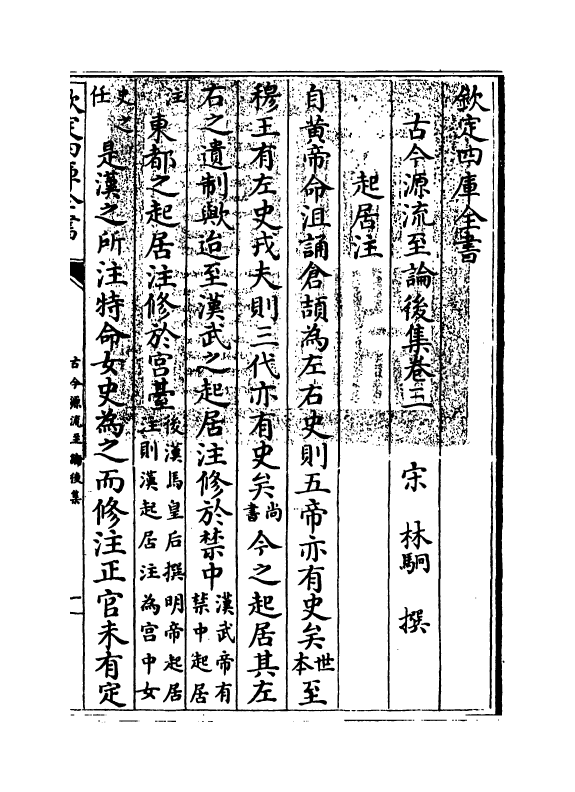 欽定四庫全書
古今源流至論後集卷三
宋 林駉 撰
起居注
自黄帝命沮誦倉頡為左右史則五帝亦有史矣世本至
穆王有左史戎夫則三代亦有史矣尚書今之起居其左
右之遺制歟迨至漢武之起居注修於禁中漢武帝有禁中起居
注東都之起居注修於宫臺後漢馬皇后撰明帝起居注則漢起居注為宫中女
史之任是漢之所注特命女史為之而修注正官未有定
欽定四庫全書
古今源流至論後集
一